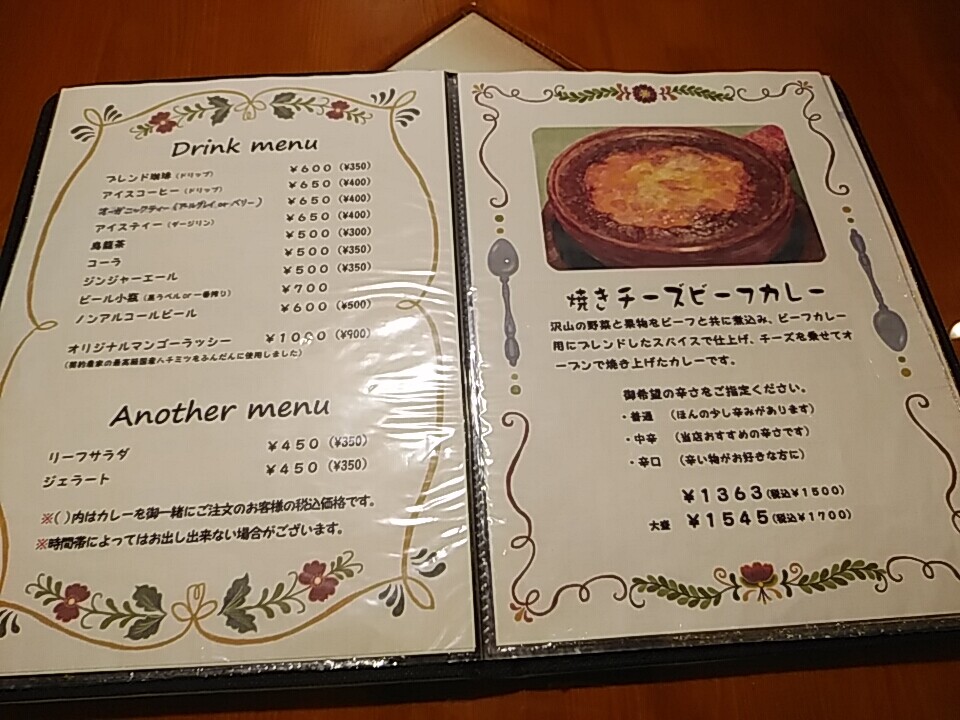 Drink menu
ブレンド珈琲(ドリップ) ¥600(¥350)
アイスコーヒー(ドリップ) ¥650(¥400)
オーガニックティー(アールグレイ or ベリー) ¥650(¥400)
アイスティー(ダージリン) ¥650(¥400)
烏龍茶 ¥500(¥300)
コーラ ¥500(¥350)
ジンジャーエール ¥500(¥350)
ビール小瓶(黒ラベル or 一番搾り) ¥700
ノンアルコールビール ¥600(¥500)
オリジナルマンゴーラッシー ¥1000(¥900)
(契約農家の最高級国産ハチミツをふんだんに使用しました)
Another menu
リーフサラダ ¥450(¥350)
ジェラート ¥450(¥350)
※( )内はカレーを御一緒にご注文のお客様の税込価格です。
※時間帯によってはお出し出来ない場合がございます。
焼きチーズビーフカレー
沢山の野菜と果物をビーフと共に煮込み、ビーフカレー
用にブレンドしたスパイスで仕上げ、チーズを乗せてオ
ーブンで焼き上げたカレーです。
御希望の辛さをご指定ください。
・普通 (ほんの少し辛みがあります)
・中辛 (当店おすすめの辛さです)
・辛口 (辛い物がお好きな方に)
¥1363(税込¥1500)
大盛 ¥1545(税込¥1700)